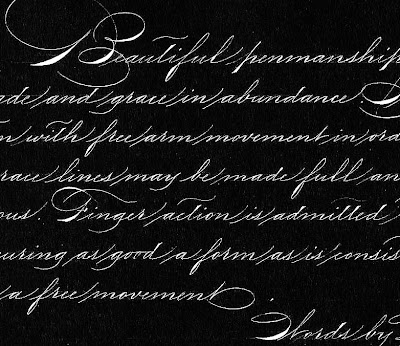 Beautiful penmanship
ade and grace in abundance.
n with free arm movement in ord
race lines may be made full an
ous. Finger action is admitted
curing as good a form as is consis
a free movement.
Words by